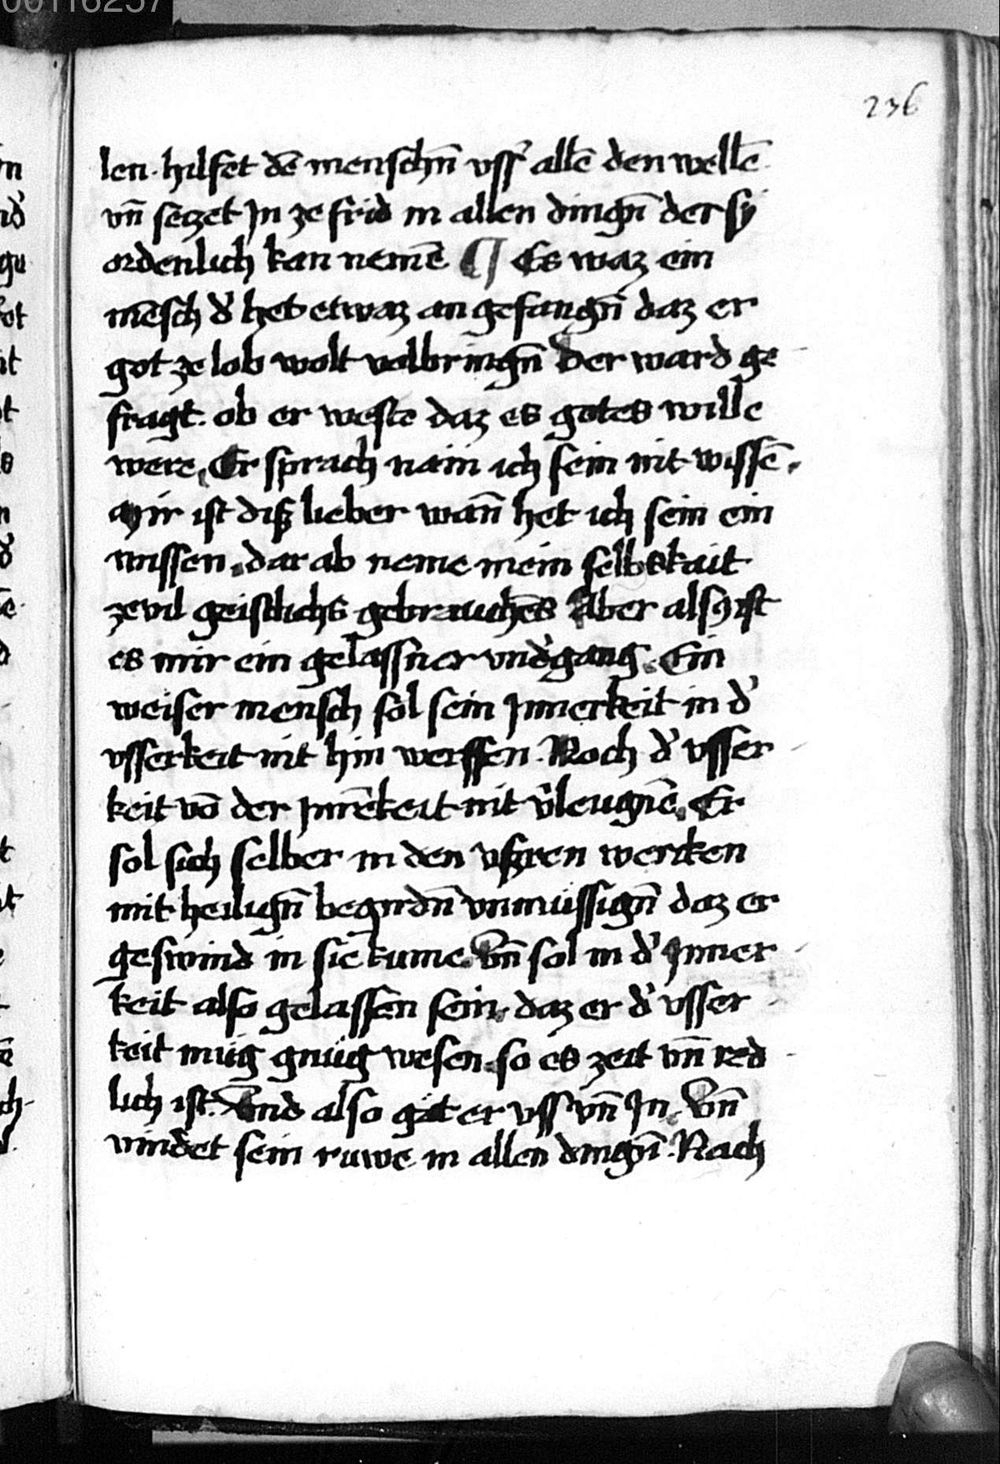 00116257
236
len. hilfet dē menschn̄ vss' allē den wellē
vn̄ seczet Jn ze frid in allen dingn̄ der sy
ordenlich kan nemē ¶ Es waz ein
mēsch d' het etwaz an gefangn̄ daz er
got ze lob wolt volbringn̄ Der ward ge
fragt. ob er weste daz es gotes wille
were. Er sprach nain ich sein nit wissē.
Mir ist diß lieber wan̄ het ich sein ein
wissen. dar ab neme mein selbskait
ze vil geistlichs gebruchēs Aber also ist
es mir ein gelassner vnd'gang. Ein
weiser mensch sol sein Jnnerkeit in d'
vsserkeit nit hin werffen. Noch d' vsser
keit vō der Jnrēkeit nit v'leugnē. Er
sol sich selber in den vßren wercken
mit heilign̄ begirdn̄ vnmüssign̄ daz er
geswind in sie kume. Vn̄ sol in d' Jnner
keit also gelassen sein. daz er d' vsser
keit müg gnüg wesen. so es zeit vn̄ red
lich ist. Vnd also gät er vss vn̄ Jn. Vn̄
vindet sein ruwe in allen dingn̄. Nach